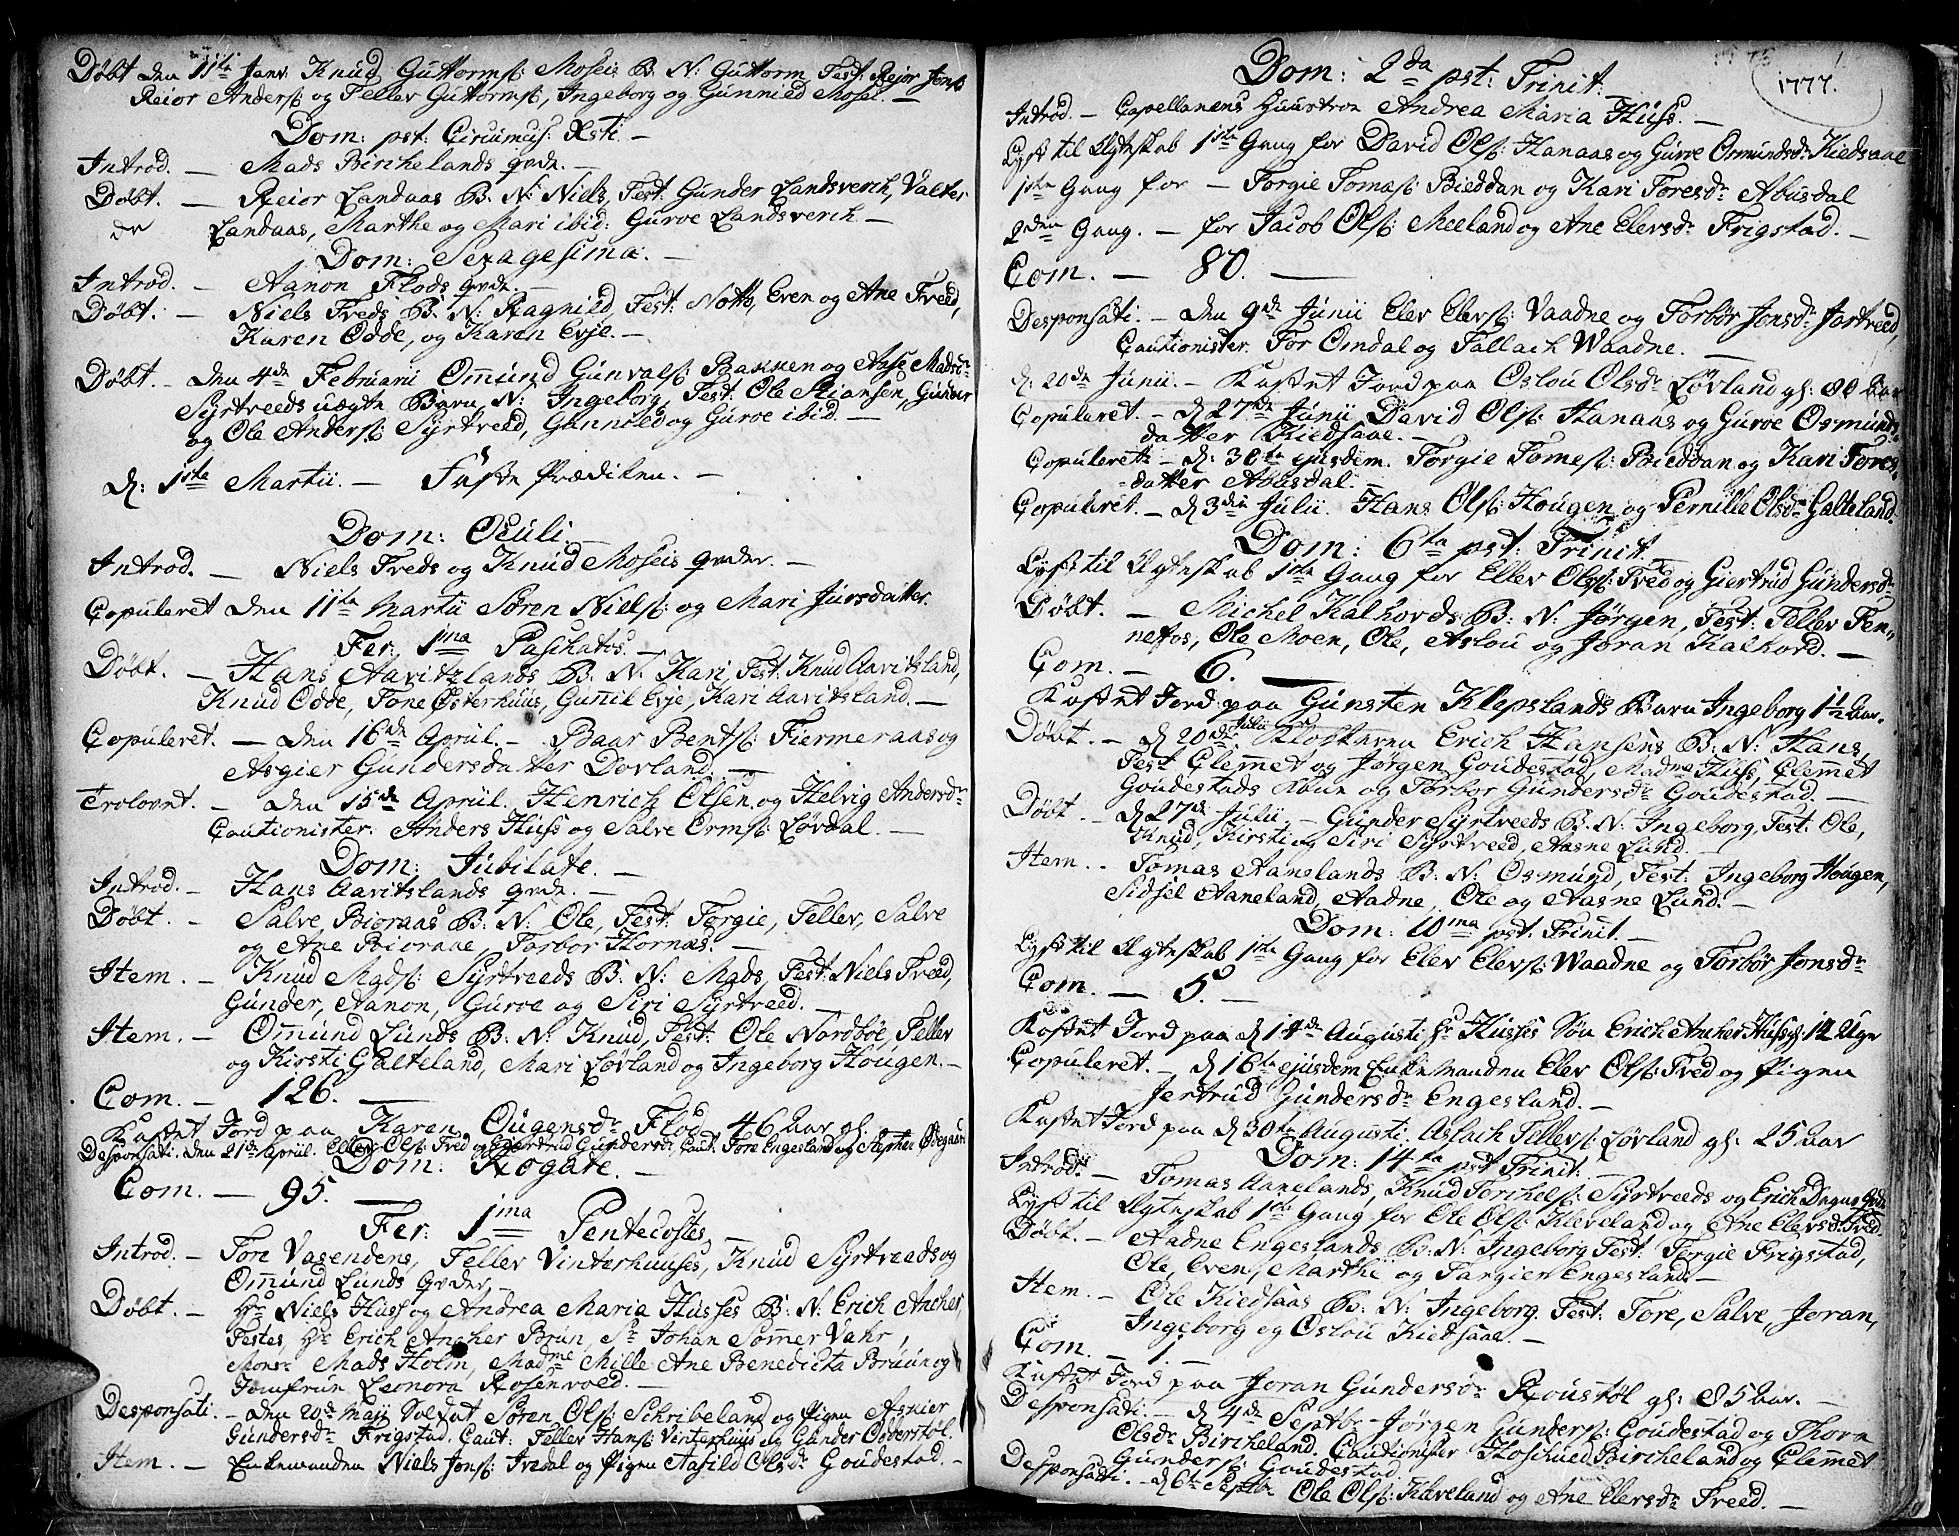 Döbt den 11te Janv: Knud Guttormsß: Moseis B: N: Guttorm Test: Reior Jons
Reior Andersß og Tellev Guttormsß, Ingeborg og Gunnild Mosei. —
Dom: pst: Circumus: Xsti. —
Introd. — Mads Birchelands qvde. —
Döbt. — Reior Landaas B: N: Niels, Test: Gunder Landsverch, Valter
Landaas, Marthe og Mari ibid: Guroe Landsverch. —
Dom: Sexagesima. —
Introd. — Aanon Flods qvde. —
Döbt. — Niels Treds B. N: Ragnild, Test: Notto, Even og Ane Treed,
Karen Odde, og Karen Evje. —
Döbt. — den 4de Februarii Omund Gunvalsß: Bakken og Aase Madsdr
Syrtreeds uægte Barn N: Ingeborg, Test: Ole Stiansen, Gunder
og Ole Andersß: Syrtreed, Gunnild og Guroe ibid. —
d: 1ste Martii. — Faste Prædiken. —
Dom: Oculi. —
Introd. — Niels Treds og Knud Moseis qvder. —
Copuleret den 11te Martii Sören Nielsß: og Mari Jursdatter.
Fer: 1ma Paschatos. —
Döbt. — Hans Aavitslands B: N: Kari, Test: Knud Aavitsland,
Knud Odde, Tone Østerhuus, Gunil Evje, Kari Aavitsland. —
Copuleret. — den 16de April. — Baar Bentsß: Fiermeraas og
Asgier Gundersdatter Dovland. —
Trolovet. — den 15de April. Henrich Olsen og Helvig Andersdr
Cautionister: Anders Huss og Salve Ormsß: Lövdal. —
Dom: Jubilate. —
Introd. — Hans Aavitslands qvde. —
Döbt. — Salve Bioraas B: N: Ole, Test: Torgie, Tellev, Salve
og Ane Bioraae, Torbor Hornæs. —
Item. — Knud Madsß: Syrtreeds B: N: Mads, Test: Niels Treed,
Gunder, Aanon, Guroe og Siri Syrtreed. —
Item. — Omund Lunds B: N: Knud, Test: Ole Nordböe, Tellev
og Kirsti Galteland, Mari Lövland og Ingeborg Hougen. —
Com. — 126. —
Kastet Jord paa Karen Ougensdr Flod 46 Aar gl.
Desponsati. den 21de April. Ellev Olsß: Tred og Giertrud Gundersdr Caut: Tore Engesland og Stephen Ødegaard
Dom: Rogate. —
Com. — 95. —
Fer: 1ma Pentecostes. —
Introd. — Tore Vasendens, Tellev Vinterhuuses, Knud Syrtreeds og
Omund Lunds qvder. —
Döbt. — Hr Niels Huss og Andrea Maria Husses B: N: Erich Ancher,
Testes, Hr Erich Ancher Brun, Sr Johan Sömer Vahr,
Monsr Mads Holm, Madme Mille Ane Benedicta Bruun og
Jomfrun Leonora Rosenvold. —
Desponsati. — den 20de Maji Soldat Sören Olsß: Schribeland og Pigen Asnier
Gundersdr Frigstad. Caut: Tellev Hansß: Vinterhuus og Gunder Odderstöl.
Item. — Enkemanden Niels Jonsß: Iredal og Pigen Aasild Olsdr Goudestad. —
1777.
Dom: 2da pst: Trinit.
Introd. — Capellanens Huustroe Andrea Maria Huss. —
Lyst til Ægteskab 1ste Gang for David Olsß: Hanaas og Guroe Osmundsdr Kiedsaae
1ste Gang for — Torgie Tomesß: Bieddan og Kari Toresdr Abusdal
2den Gang. — for Jacob Olsß: Meeland og Ane Elevsdr Frigstad. —
Com. — 80. —
Desponsati. — den 9de Junii Elev Elevsß: Vaadne og Torbör Jonsdr Jortveed,
Cautionister. Tor Omdal og Tallach Waadne. —
d: 20de Junii. — Kastet Jord paa Oslou Olsdr Lövland gl: 80 Aar
Copuleret. — d 27de Junii David Olsß: Hanaas og Guroe Osmunds
datter Kiedsaae. —
Copuleret. — d: 30te ejusdem. Torgie Tomesß: Bieddan og Kari Tores
datter Abusdal. —
Copuleret. — d 3die Julii Hans Olsß: Hougen og Pernille Olsdr Galteland.
Dom: 6ta pst: Trinit. —
Lyst til Ægteskab 1ste Gang for Ellev Olsß: Tred og Giertrud Gundersdr
Döbt. — Michel Kalhovds B: N: Jörgen, Test: Tellev Fen
nefos, Ole Moen, Ole, Aslou og Joran Kalhovd. —
Com. — 6. —
Kastet Jord paa Gunsten Klepslands Barn Ingeborg 1½ Aar.
Döbt. — d 20de Julii Klokkeren Erich Hansens B: N: Hans,
Test Clemet og Jörgen Goudestad, Madme Huss, Clemet
Goudestads Kone og Torbor Gundersdr Goudestad. —
Döbt. — d 27de Julii. — Gunder Syrtreeds B: N: Ingeborg, Test: Ole,
Knud, Kirsti og Siri Syrtreed, Aasne Lund. —
Item. — Tomas Aanelands B: N: Osmund, Test: Ingeborg Hougen,
Sidsel Aaneland, Aadne, Ole og Aasne Lund. —
Dom: 10ma pst: Trinit. —
Lyst til Ægteskab 1ste Gang for Elev Elevsß: Waadne og Torbör Jonsdr
Com. — 5. —
Kastet Jord paa d 14de Augusti Hr Husses Sön Erich Ancher Huss gl: 12 Uger
Copuleret. — d 16te ejusdem Enkemanden Elev Olsß: Tred og Pigen
Jertrud Gundersdr Engesland. —
Kastet Jord paa d 30te Augusti. Aslach Tellevsß: Lövland gl: 25 Aar
Dom: 14ta pst Trinit: —
Introd. — Tomas Aanelands, Knud Terchelsß: Syrtreeds og Erich qvder
Lyst til Ægteskab 1ste Gang for Ole Olsß: Kleveland og Ane Elevsdr Tred.
Döbt. — Aadne Engeslands B: N: Ingeborg Test: Torgie Frigstad,
Ole, Even, Marthe og Targier Engesland —
Item. — Ole Kiedsaas B: N: Ingeborg. Test: Tore, Salve, Joran,
Ingeborg og Oslou Kiedsaae. —
Com. — 1. —
Kastet Jord paa Joran Gundersdr Roustöl gl: 85 Aar. —
Desponsati. — d 4de Septbr Jörgen Gundersß: Goudestad og Thora
Olsdr Bircheland. Cautionister Bircheland og Clemet
Gundersß: Goudestad.
Desponsati. — d 6te Septbr Ole Olsß: Kleveland og Ane Elevsdr Treed. —